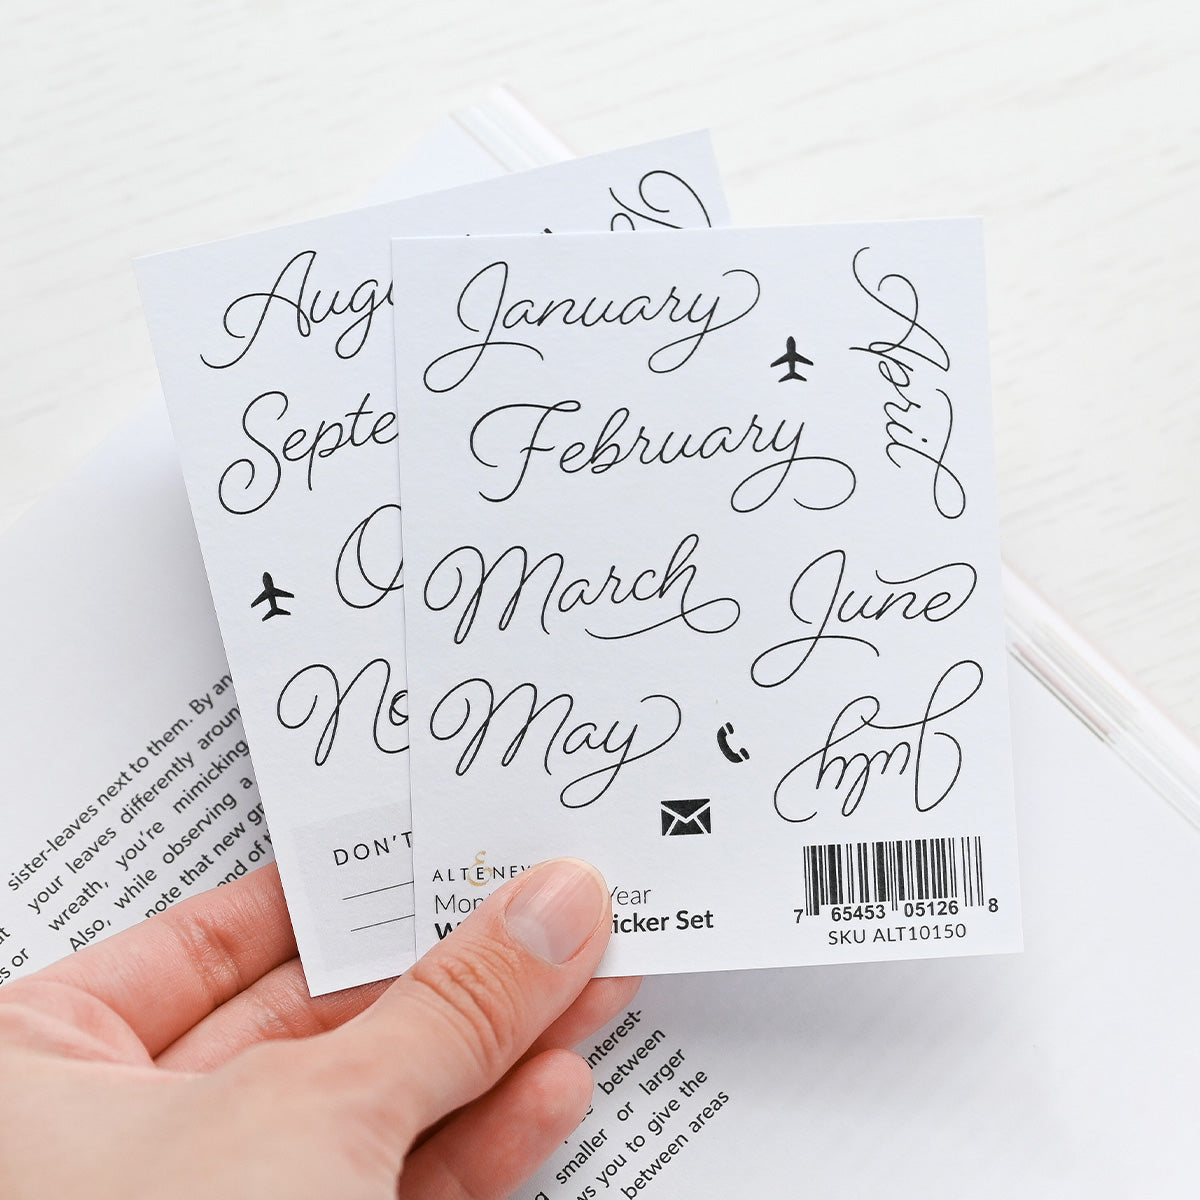 January
February
March
May
April
June
July
ALTENEW
Year
Sticker Set
7 65453 05126 8
SKU ALT10150
DON'T
sister-leaves next to them. By an
your leaves differently around
wreath, you're mimicking
Also, while observing a
note that new
end of
or
between
smaller or larger
you to give the
between areas